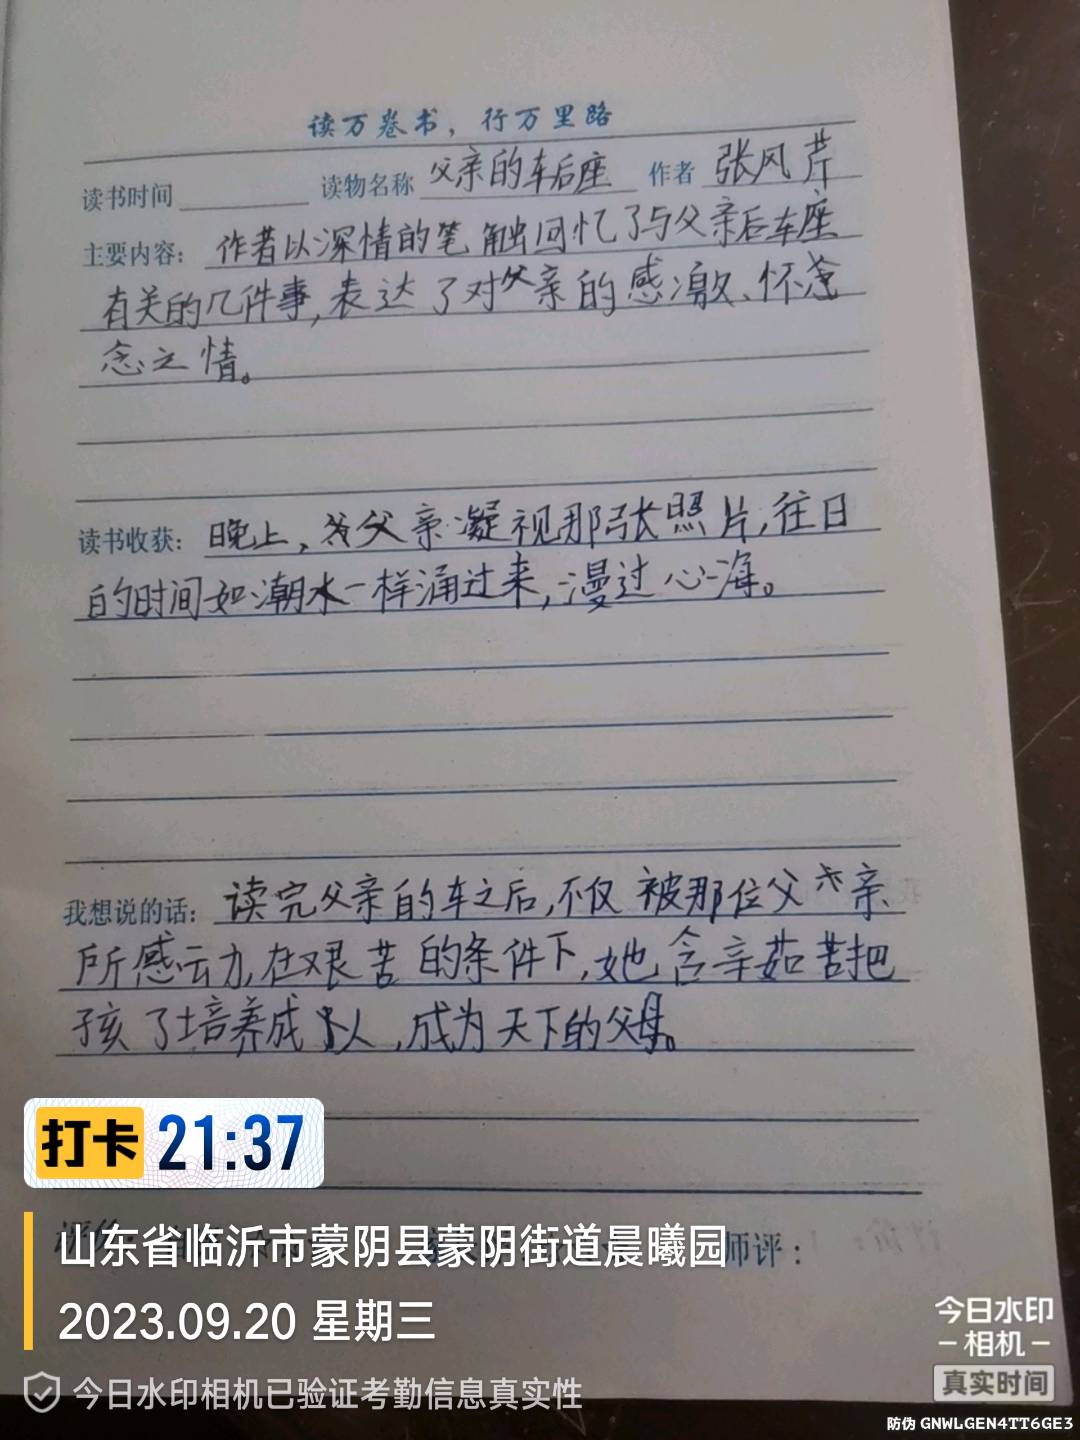 读万卷书，行万里路
读书时间 读物名称 父亲的车后座 作者 张风芹
主要内容：作者以深情的笔触回忆了与父亲后车座
有关的几件事，表达了对父亲的感激、怀念
念之情。
读书收获：晚上，父亲凝视那张照片，往日
的时间如潮水一样涌过来，漫过心海。
我想说的话：读完父亲的车之后，不仅被那位父亲
所感动，在艰苦的条件下，她含辛茹苦把
孩了培养成人，成为天下的父母。
打卡 21:37
师评：
山东省临沂市蒙阴县蒙阴街道晨曦园
2023.09.20 星期三
今日水印相机已验证考勤信息真实性
今日水印
相机
真实时间
防伪 GNWLGEN4TT6GE3